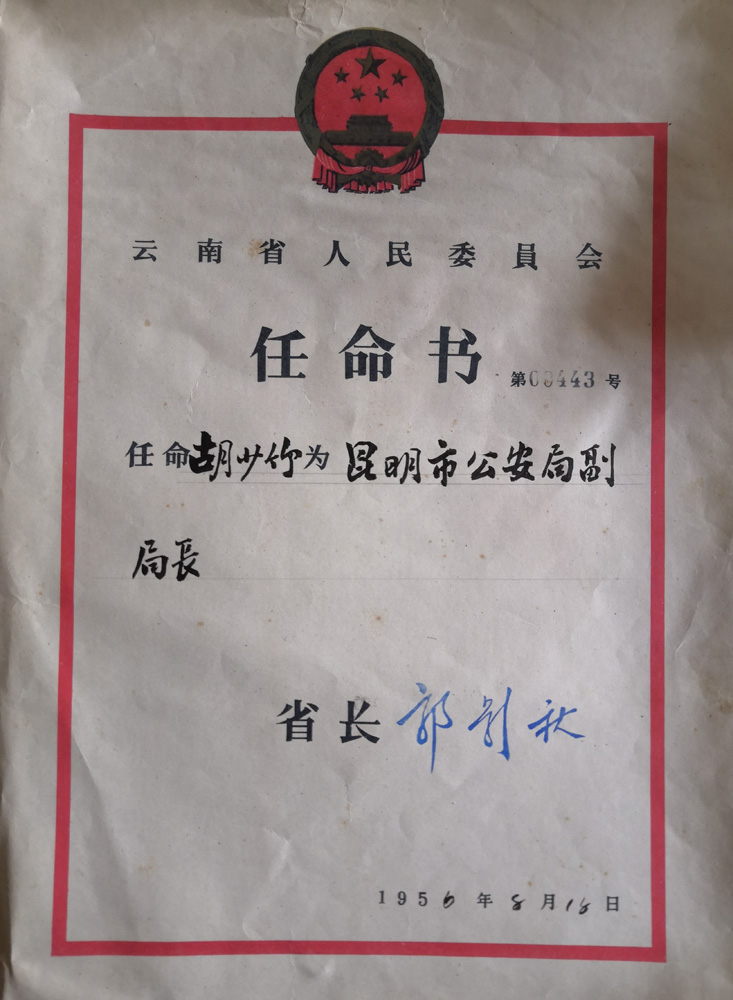 云南省人民委員会
任命书
第00443号
任命胡少你为昆明市公安局副
局長
省长 郭影秋
1956年8月18日